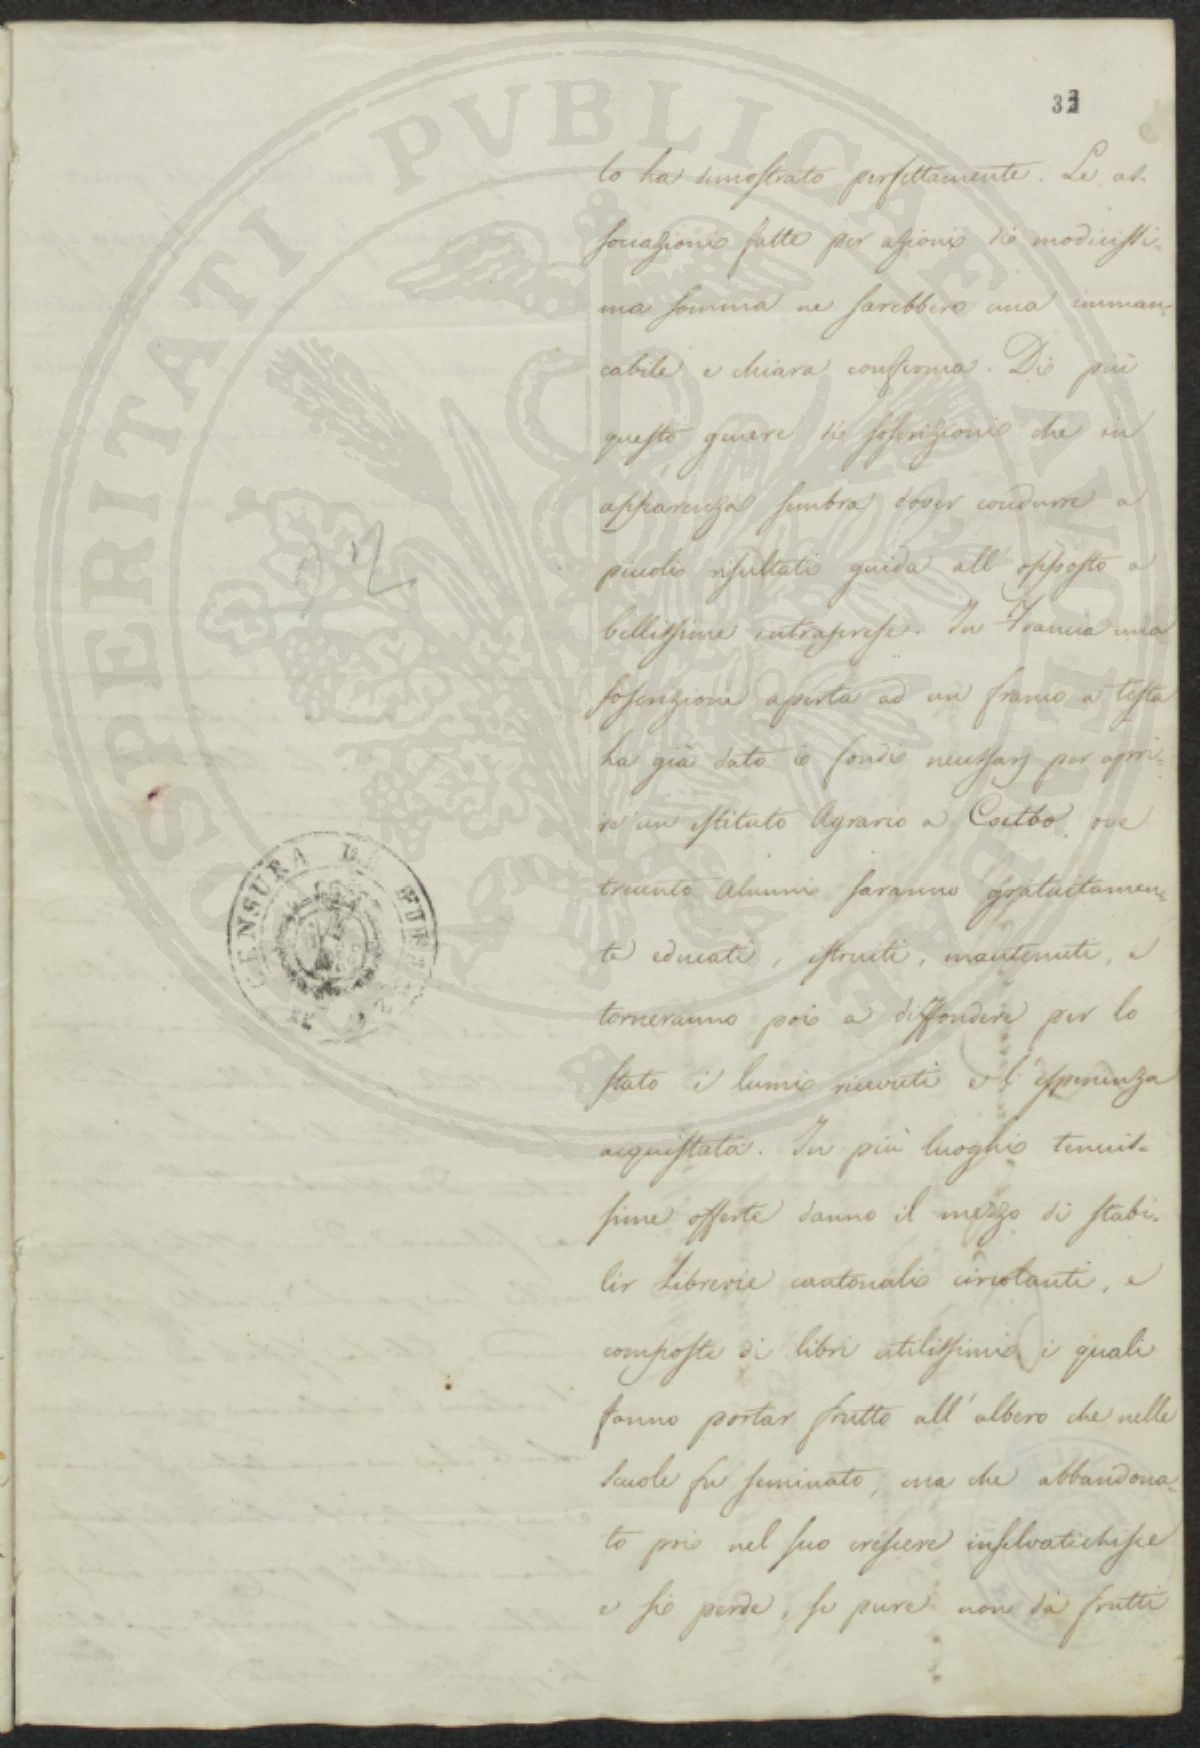 32
lo ha dimostrato perfettamente. Le as-
sociazioni fatte per azioni di modicissi-
ma somma ne sarebbero una imman-
cabile e chiara conferma. Di più
questo genere di soscrizioni che in
apparenza sembra dover condurre a
piccoli risultati guida all'opposto a
bellissime intraprese. In Francia una
soscrizione aperta ad un franco a testa
ha già dato i fondi necessarj per apri-
re un istituto Agrario a Coetbo, ove
trecento Alunni saranno gratuitamen-
te educati, istruiti, mantenuti, e
torneranno poi a diffondere per lo
stato i lumi ricevuti e l'esperienza
acquistata. In più luoghi tenuis-
sime offerte danno il mezzo di stabi-
lir Librerie cantonali circolanti, e
composte di libri utilissimi i quali
fanno portar frutto all'albero che nelle
scuole fu seminato, ma che abbandona-
to poi nel suo crescere insalvatichisce
e si perde, se pure non dà frutti
CENSURA DI
PROSPERITATI PVBLICAE AVGENDAE